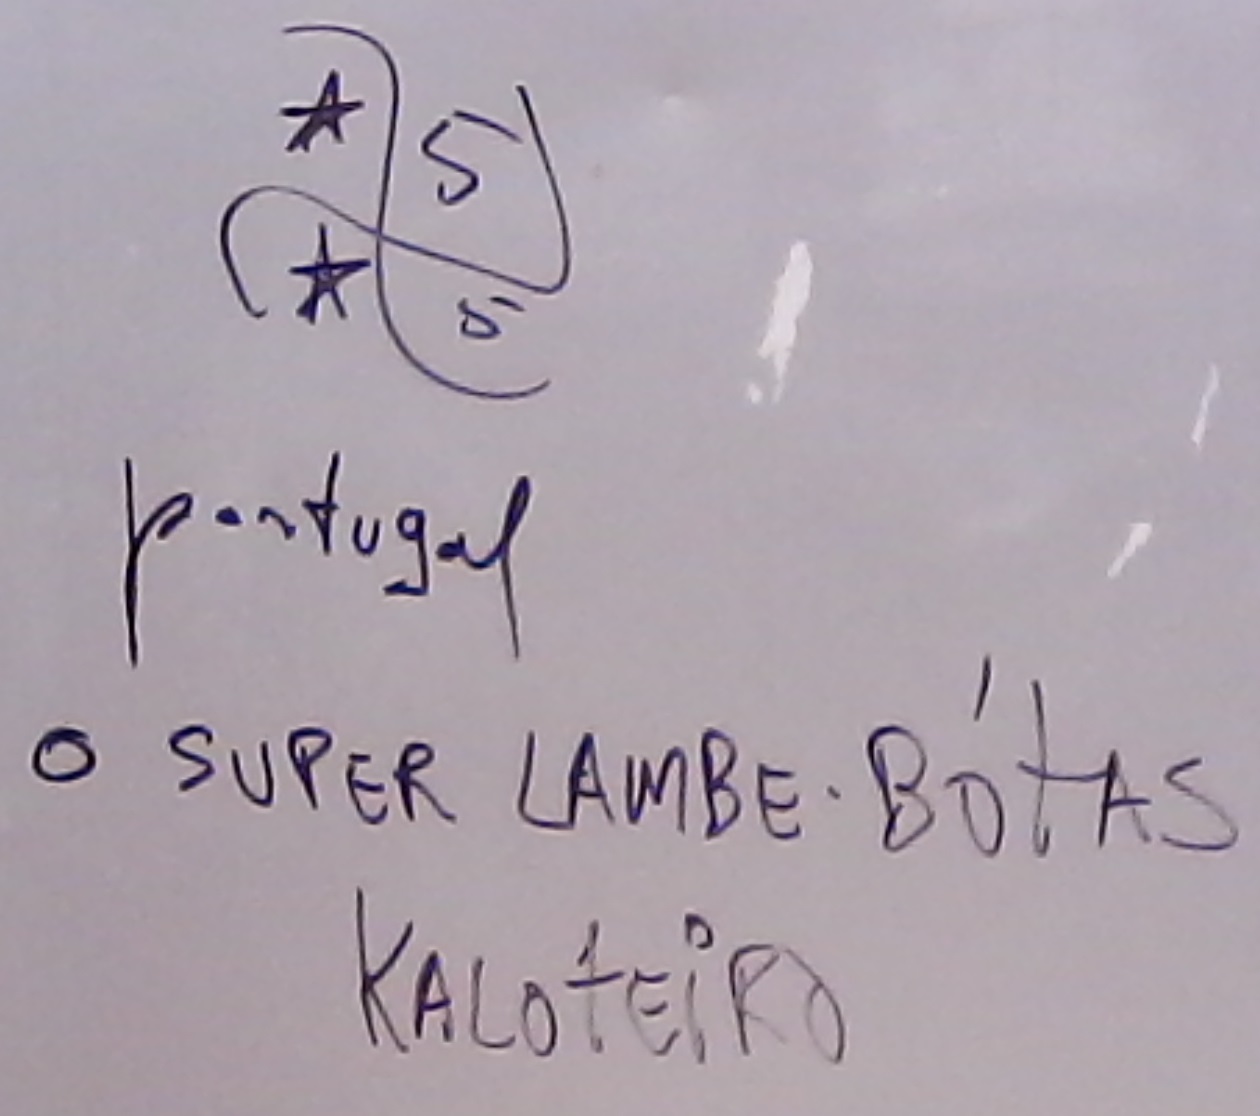 5
5
portugal
O SUPER LAMBE.BÓTAS
KALOTEIRO